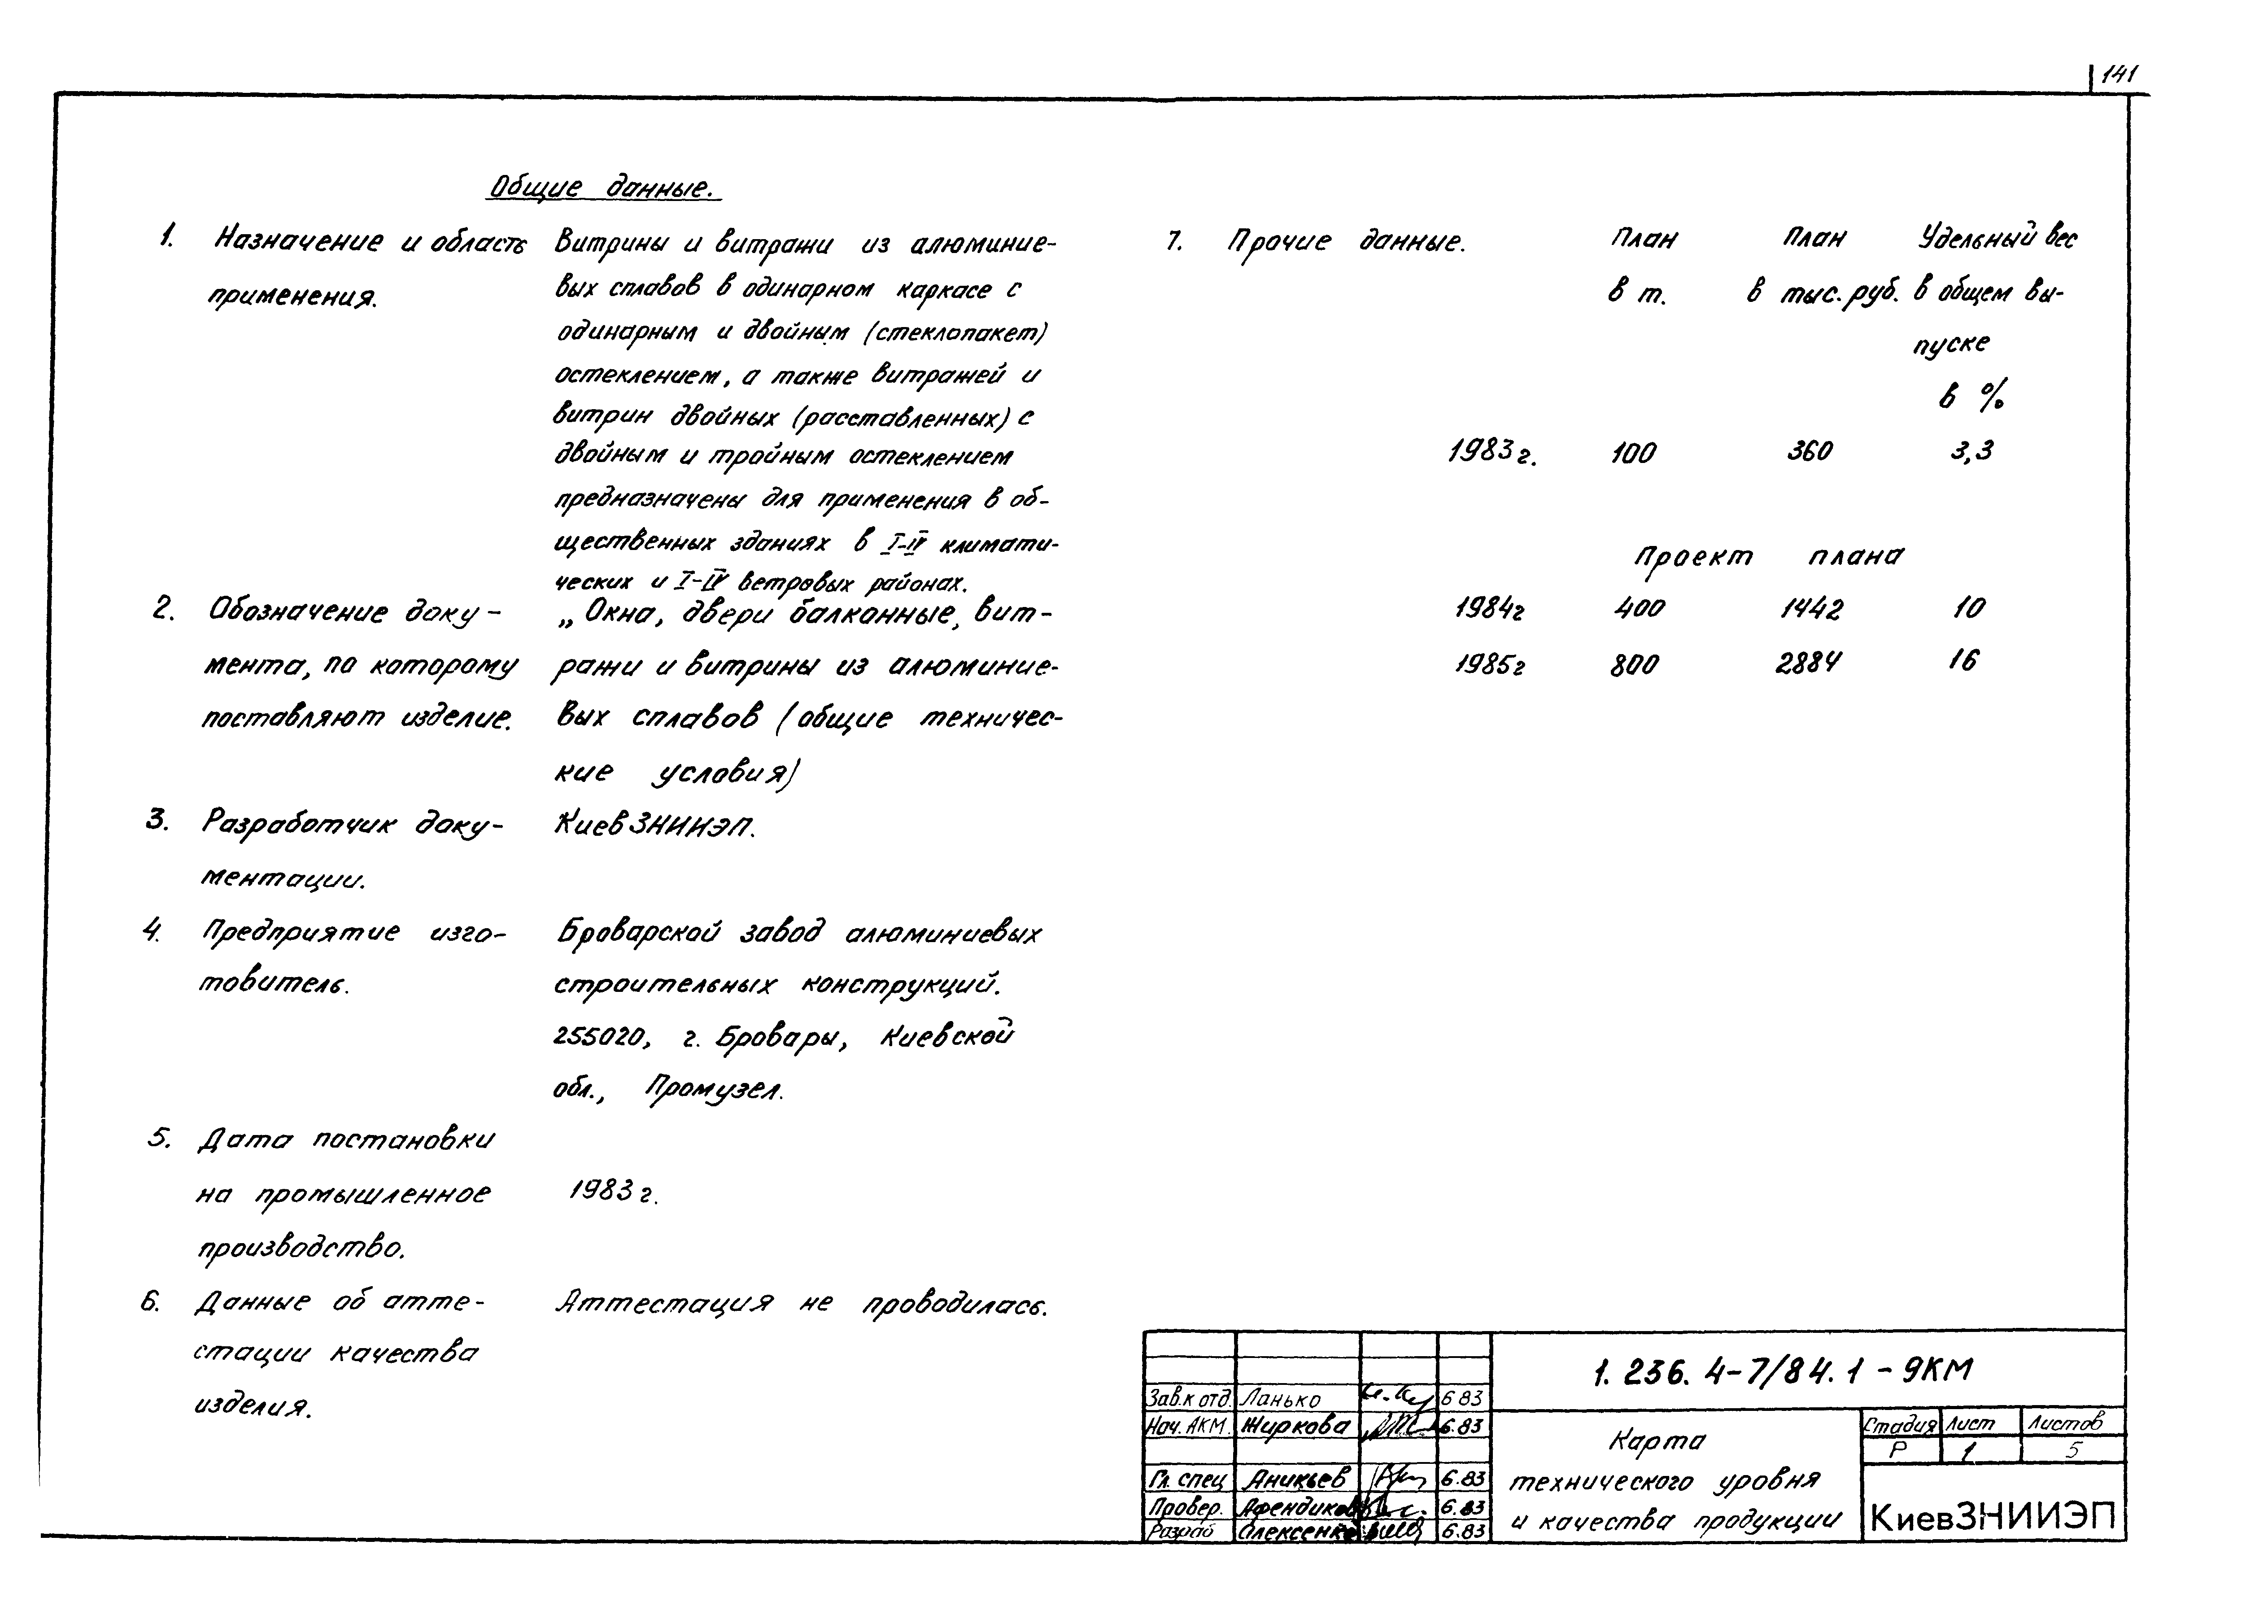 141
Общие данные.
1. Назначение и область
применения.
Витрины и витражи из алюминие-
вых сплавов в одинарном каркасе с
одинарным и двойным (стеклопакет)
остеклением, а также витражей и
витрин двойных (расставленных) с
двойным и тройным остеклением
предназначены для применения в об-
щественных зданиях в I-IV климати-
ческих и I-IV ветровых районах.
2. Обозначение доку-
мента, по которому
поставляют изделие.
„Окна, двери балконные, вит-
ражи и витрины из алюминие-
вых сплавов (общие техничес-
кие условия)
3. Разработчик доку-
ментации.
КиевЗНИИЭП.
4. Предприятие изго-
товитель.
Броварской завод алюминиевых
строительных конструкций.
255020, г. Бровары, Киевской
обл., Промузел.
5. Дата постановки
на промышленное
производство.
1983 г.
6. Данные об атте-
стации качества
изделия.
Аттестация не проводилась.
7. Прочие данные.
План План Удельный вес
в т. в тыс. руб. в общем вы-
пуске
в %
1983 г. 100 360 3,3
Проект плана
1984г 400 1442 10
1985г 800 2884 16
Зав.к отд. Ланько 6 83
Нач. АКМ. Жиркова 6.83
Гл. спец Аникьев 6.83
Провер. Афендиков 6.83
Разраб Алексеенко 6.83
1. 236. 4-7/84. 1 - 9КМ
Карта
технического уровня
и качества продукции
Стадия Лист Листов
Р 1 5
КиевЗНИИЭП